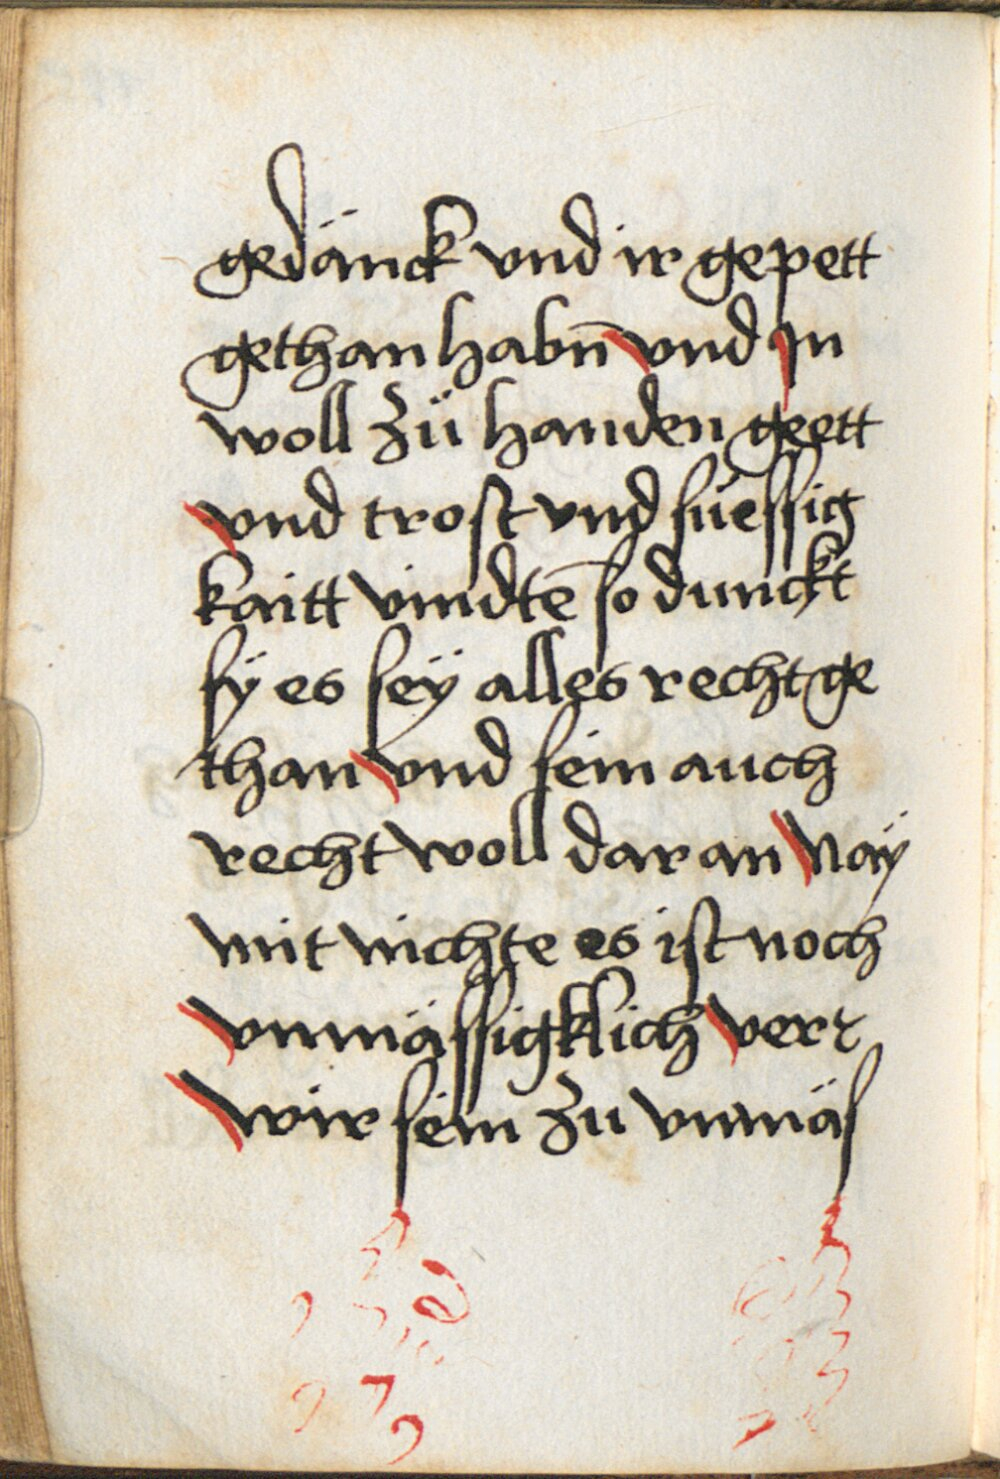 gedänck vnd ir gepett
gethan habn̄ vnd in
woll zü handen geett
vnd trost vnd süessig
kaitt vindtē so dunckt
sÿ es seÿ alles recht ge
than vnd sein auch
recht woll dar an Naÿ
mit nichte es ist noch
vnmässigklich ver
wir sein zu vnmäs